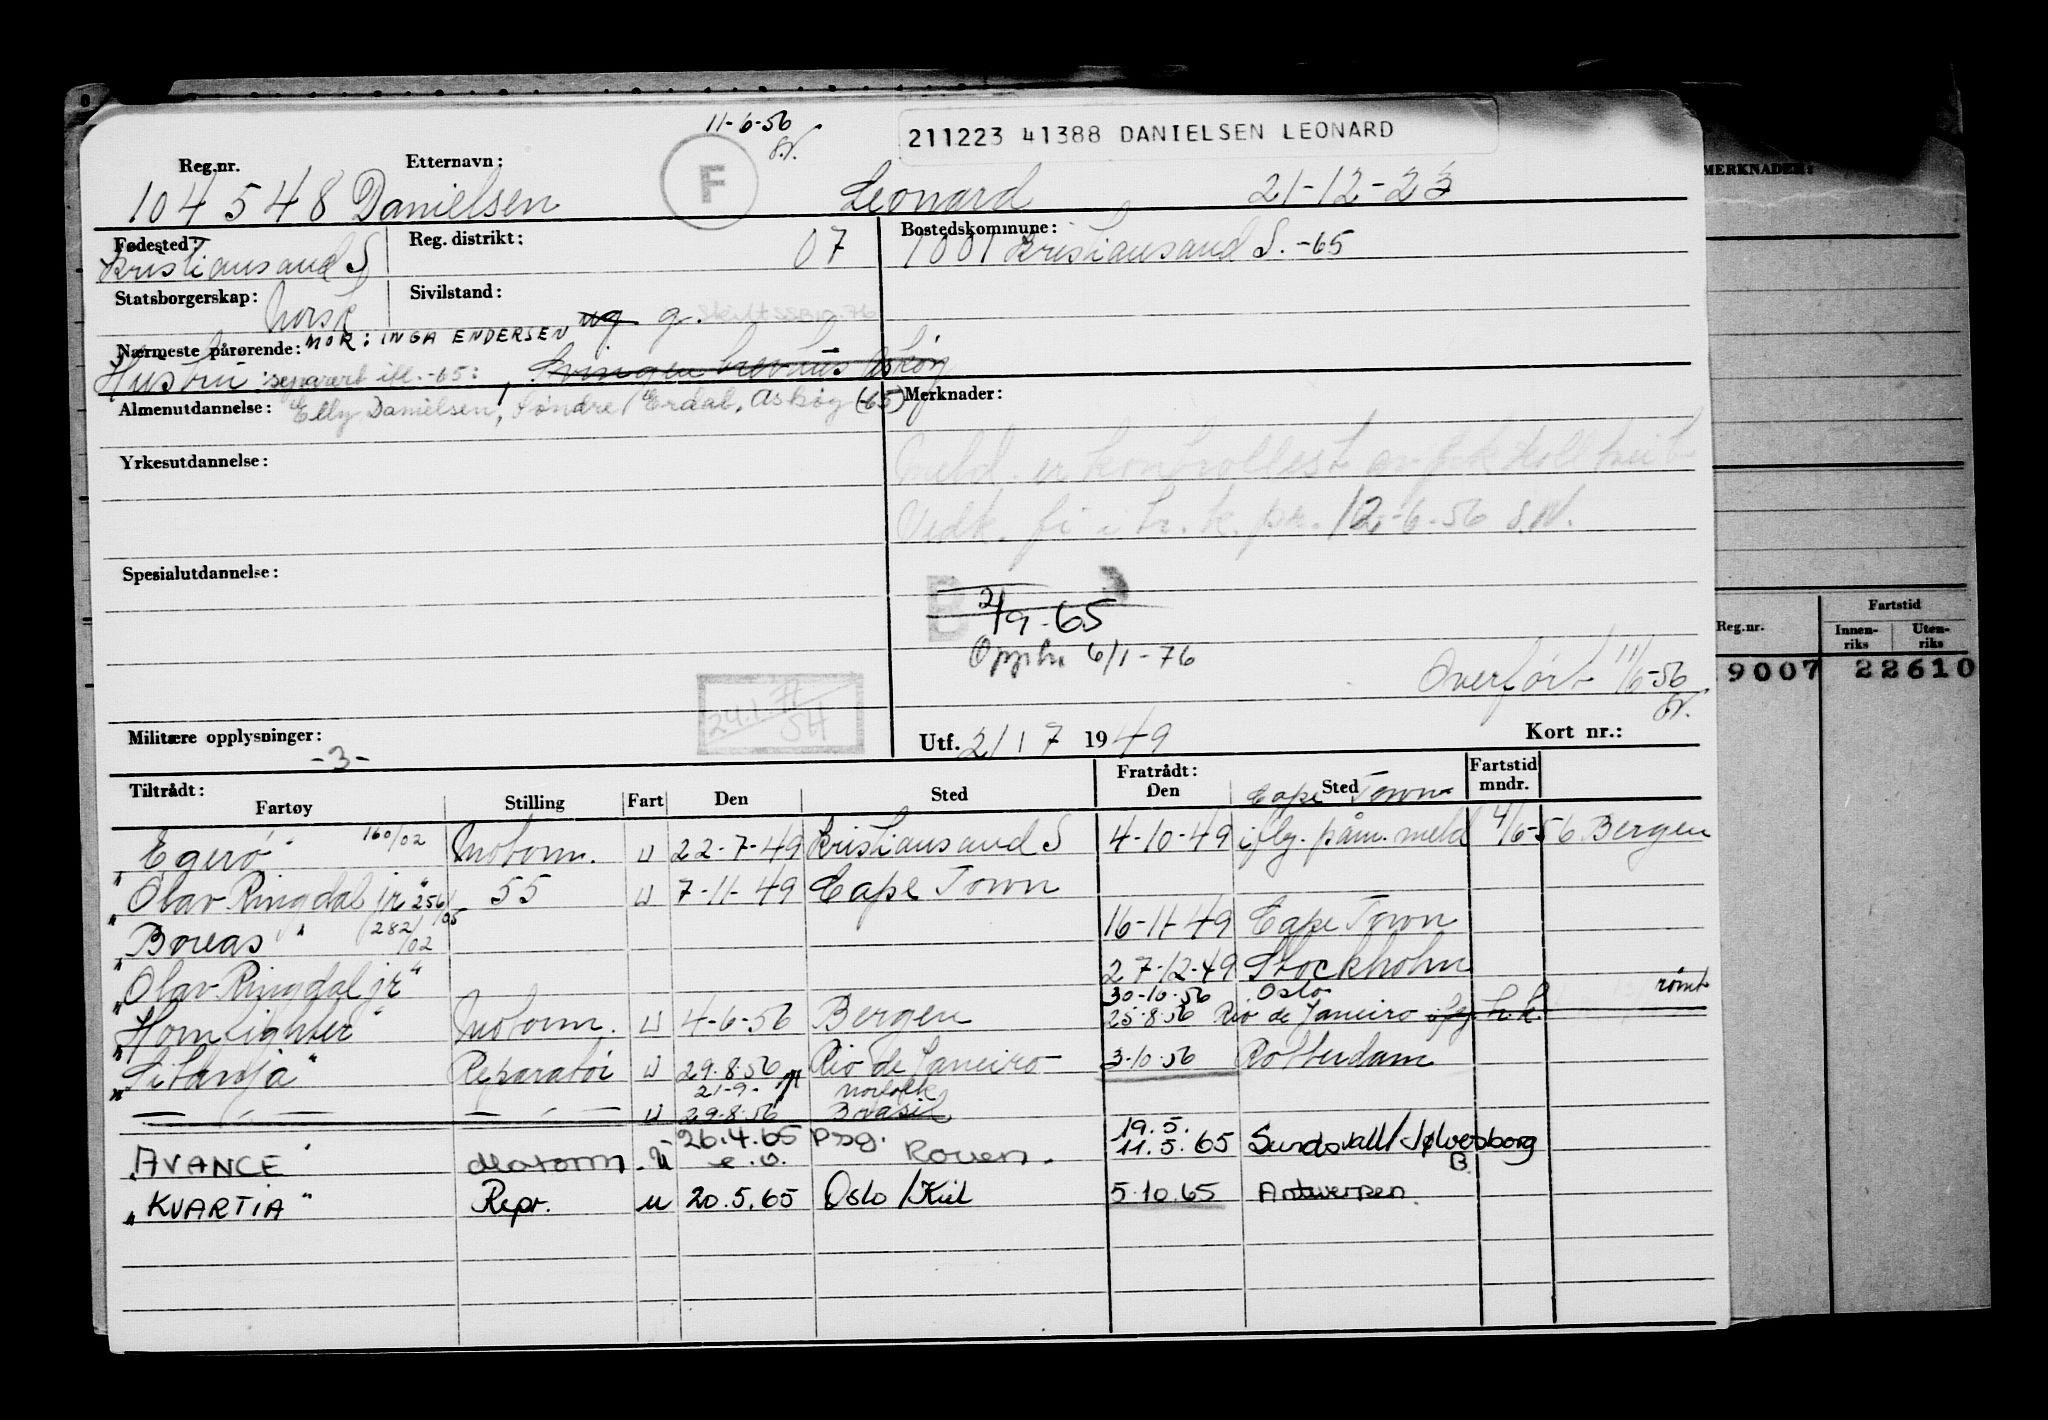 11-6-56
211223 41388 DANIELSEN LEONARD
Reg.nr. Etternavn: F
104548 Danielsen Leonard 21-12-23
MERKNADER:
Fødested: Reg. distrikt: 07 Bostedskommune:
Kristiansand S 1001 Kristiansand S. -65
Statsborgerskap: Norsk Sivilstand: ug g.
Nærmeste pårørende: MOR: INGA ENDERSEN
Hustru separert ifl. -65:
Almenutdannelse: Elly Danielsen, Søndre Erdal, Askøy (-65) Merknader:
Yrkesutdannelse:
Meld. er kontrollert
Vedk. 12-6-56
Spesialutdannelse:
B
21/9-65
6/1-76
Overført 11/6-56
Reg.nr. Fartstid
Innenriks Utenriks
9007 22610
24.1.71
SH
Militære opplysninger: Utf. 21/7 1949 Kort nr.:
-3-
Tiltrådt: Fratrådt: Fartstid mndr.
Fartøy Stilling Fart Den Sted Den Sted
Cape Town
"Egerø" 160/02 Motorm. U 22-7-49 Kristiansand S 4-10-49 iflg. påm. meld 4/6-56 Bergen
"Olav Ringdal jr" 256/05 55 U 7-11-49 Cape Town
"Boreas" 282/02 16-11-49 Cape Town
"Olav Ringdal jr" 27-12-49 Stockholm
30-10-56 Oslo
"Homlighter" Motorm. U 4-6-56 Bergen 25-8-56 Rio de Janeiro iflg. h.k. rømt
"Sitanja" Reparatør U 29.8.56 Rio de Janeiro 3-10-56 Rotterdam
21-9- Norfolk
— " — — " — U 29-8-56 Brasil
AVANCE Motorm U 26.4.65 Psg. e.o. Rouen. 19.5. 11.5.65 Sundsvall/Sølvesborg
B
"KVARTIA" Repr. u 20.5.65 Oslo/Kiel 5.10.65 Antwerpen.